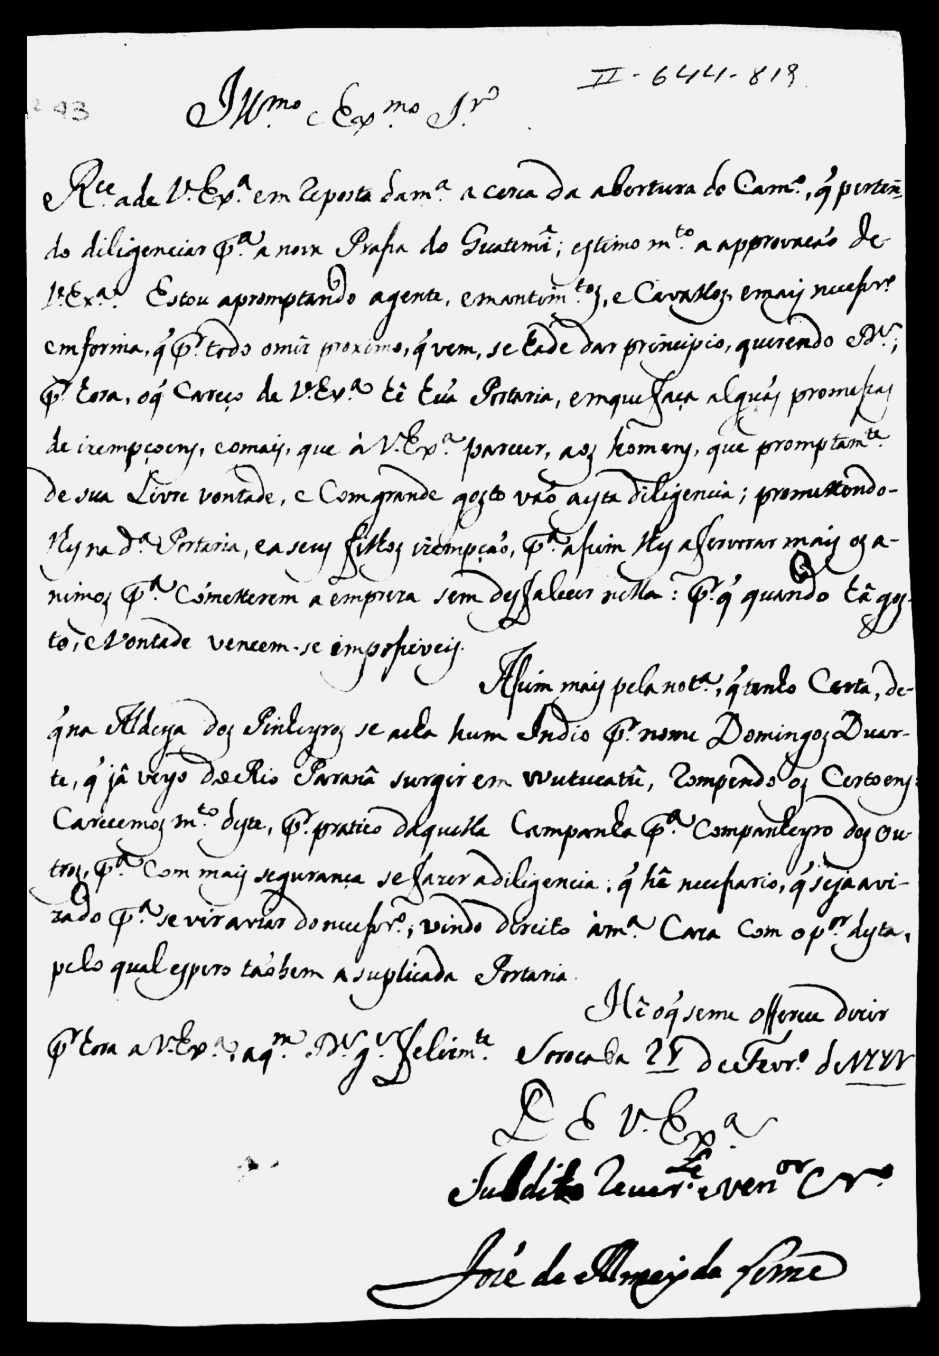 II-644-819
293
Ill.mo e Ex.mo S.r
Rce. a de V. Ex.a em reposta da m.a a cerca da abertura do Cam.o, q̃ pertẽn-
do diligenciar p.a a nova Prasia do Guatemĩ; estimo m.to a approvacaõ de
V. Ex.a. Estou apromptando agente, emantim.tos, e Cavallos, emais necessr.o
emforma, q̃ p.r todo omês proximo, q̃ vem, se ade dar principio, querendo D.s;
p.r hora, oq̃ Careço de V. Ex.a hê hũa Portaria, emque faça alguãs promessas
de izempçoens, eomais, que à V. Ex.a parecer, aos homens, que promptam.te
de sua Livre vontade, e Comgrande gosto vaõ aesta diligencia; promettendo-
lhes na d.a Portaria, e a seus filhos izempçaõ, p.a assim lhes afervorar mais os a-
nimos p.a Cometterem a empreza sem desfalecer nella: p.r q̃ quando hâ gos-
to, e Vontade vencem-se impossiveis.
Assim mais pela not.a, q̃ tenho Certa, de-
q̃ na Aldeya dos Pinheyros se acha hum Indio p.r nome Domingos Duar-
te, q̃ jâ veyo do Rio Paranâ surgir em Wutucatũ, rompendo os Certoens:
Carecemos m.to deste, p.r pratico daquella Campanha p.a Companheyro dos Ou-
tros, p.a Com mais segurança se fazer a diligencia; q̃ hê necessario, q̃ seja avi-
zado p.a se vir aviar do necessr.o; vindo direito à m.a Caza Com o p.or desta,
pelo qual espero taõbem a suplicada Portaria.
Hê oq̃ seme offerece dizer
p.r hora a V. Ex.a, aq.m D.s g.e felism.te Sorocaba 25 de Fevr.o de
D E V. Ex.a
Subdito Rever.te e Ven.or Cr.o
José de Almeyda Leme